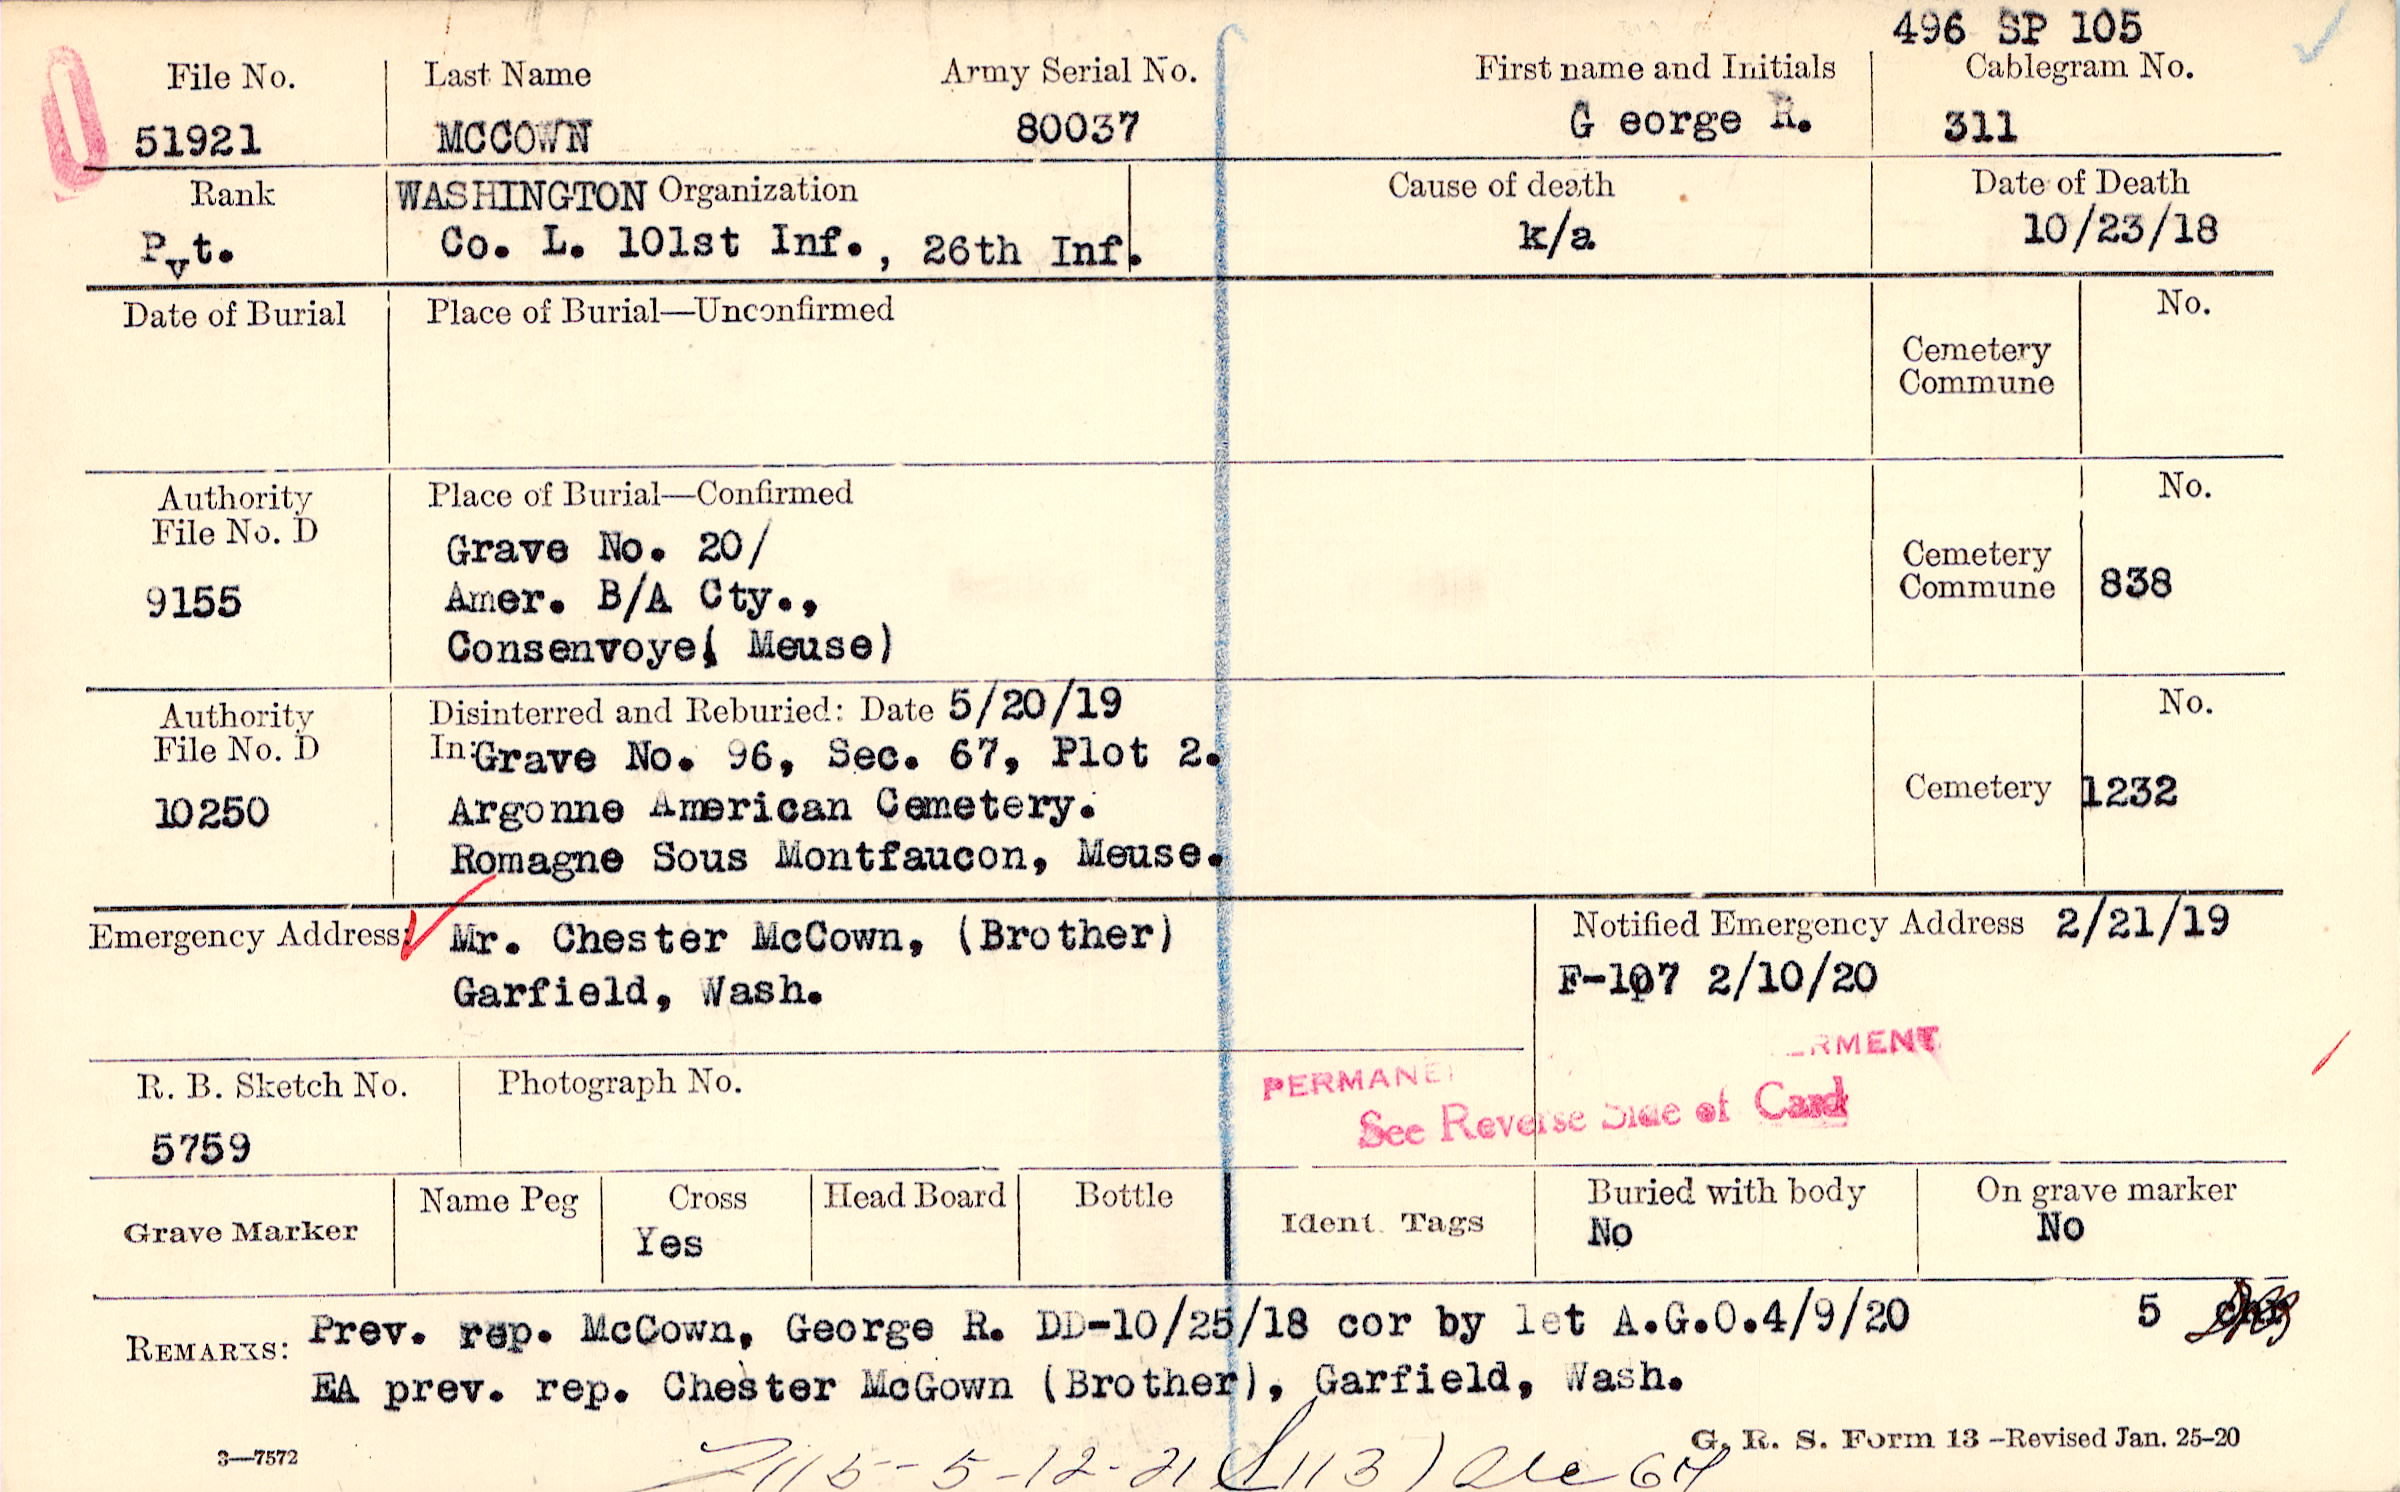 496 SP 105
File No.
Last Name
Army Serial No.
First name and Initials
Cablegram No.
51921
MCCOWN
80037
G eorge R.
311
Rank
WASHINGTON Organization
Cause of death
Date of Death
Pvt.
Co. L. 101st Inf., 26th Inf.
k/a
10/23/18
Date of Burial
Place of Burial—Unconfirmed
Cemetery
Commune
No.
Authority
File No. D
9155
Place of Burial—Confirmed
Grave No. 20/
Amer. B/A Cty.,
Consenvoye( Meuse)
Cemetery
Commune
No.
838
Authority
File No. D
10250
Disinterred and Reburied: Date 5/20/19
In: Grave No. 96, Sec. 67, Plot 2.
Argonne American Cemetery.
Romagne Sous Montfaucon, Meuse.
Cemetery
No.
1232
Emergency Address:
Mr. Chester McCown, (Brother)
Garfield, Wash.
Notified Emergency Address 2/21/19
F-107 2/10/20
R. B. Sketch No.
5759
Photograph No.
PERMANE
RMENT
See Reverse Side of Card
Grave Marker
Name Peg
Cross
Yes
Head Board
Bottle
Ident. Tags
Buried with body
No
On grave marker
No
REMARKS: Prev. rep. McCown, George R. DD-10/25/18 cor by let A.G.O.4/9/20 5
EA prev. rep. Chester McGown (Brother), Garfield, Wash.
3—7572
G. R. S. Form 13 -Revised Jan. 25-20
5-12-21